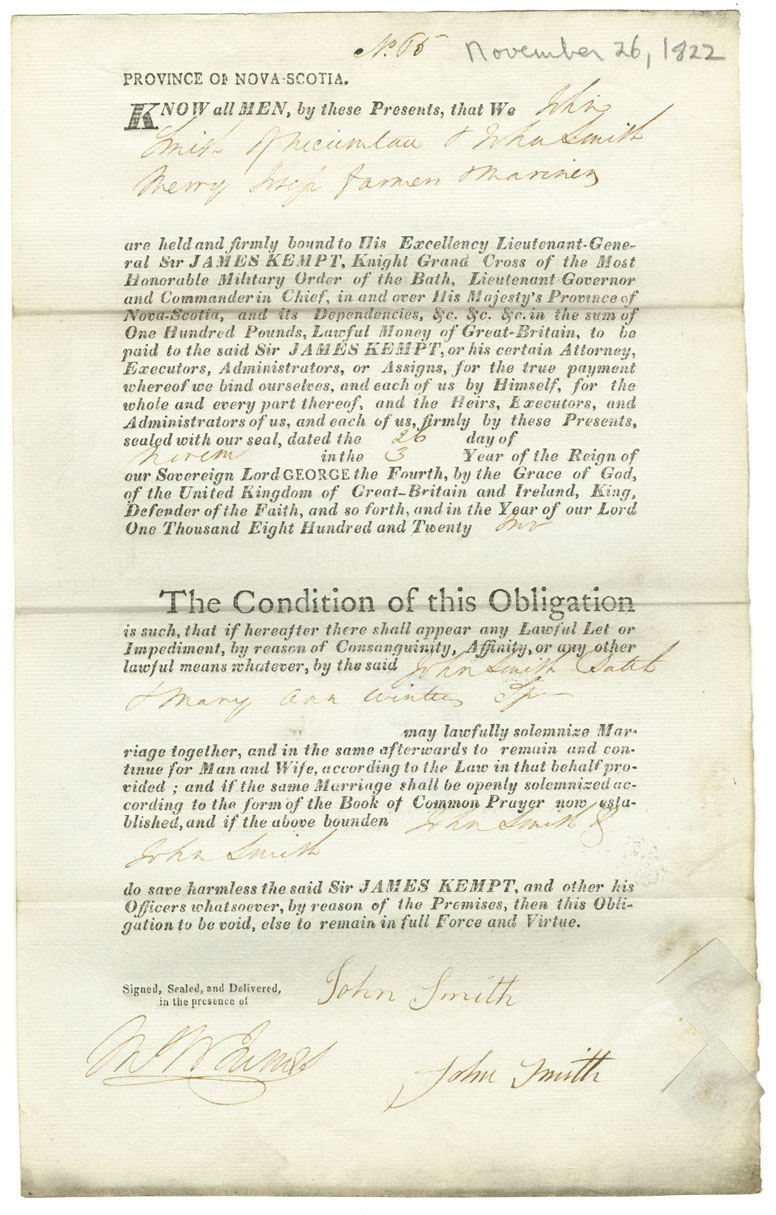 No. 65 November 26, 1822
PROVINCE OF NOVA-SCOTIA.
KNOW all MEN, by these Presents, that We John
Smith & John Smith
Farmer & Mariner
are held and firmly bound to His Excellency Lieutenant-Gene-
ral Sir JAMES KEMPT, Knight Grand Cross of the Most
Honorable Military Order of the Bath, Lieutenant Governor
and Commander in Chief, in and over His Majesty's Province of
Nova-Scotia, and its Dependencies, &c. &c. &c. in the sum of
One Hundred Pounds, Lawful Money of Great-Britain, to be
paid to the said Sir JAMES KEMPT, or his certain Attorney,
Executors, Administrators, or Assigns, for the true payment
whereof we bind ourselves, and each of us by Himself, for the
whole and every part thereof, and the Heirs, Executors, and
Administrators of us, and each of us, firmly by these Presents,
sealed with our seal, dated the 26 day of
Novem in the 3 Year of the Reign of
our Sovereign Lord GEORGE the Fourth, by the Grace of God,
of the United Kingdom of Great-Britain and Ireland, King,
Defender of the Faith, and so forth, and in the Year of our Lord
One Thousand Eight Hundred and Twenty two
The Condition of this Obligation
is such, that if hereafter there shall appear any Lawful Let or
Impediment, by reason of Consanguinity, Affinity, or any other
lawful means whatever, by the said John Smith Batch
& Mary Ann Winters Sp
may lawfully solemnize Mar-
riage together, and in the same afterwards to remain and con-
tinue for Man and Wife, according to the Law in that behalf pro-
vided ; and if the same Marriage shall be openly solemnized ac-
cording to the form of the Book of Common Prayer now esta-
blished, and if the above bounden John Smith &
John Smith
do save harmless the said Sir JAMES KEMPT, and other his
Officers whatsoever, by reason of the Premises, then this Obli-
gation to be void, else to remain in full Force and Virtue.
Signed, Sealed, and Delivered,
in the presence of
John Smith
John Smith